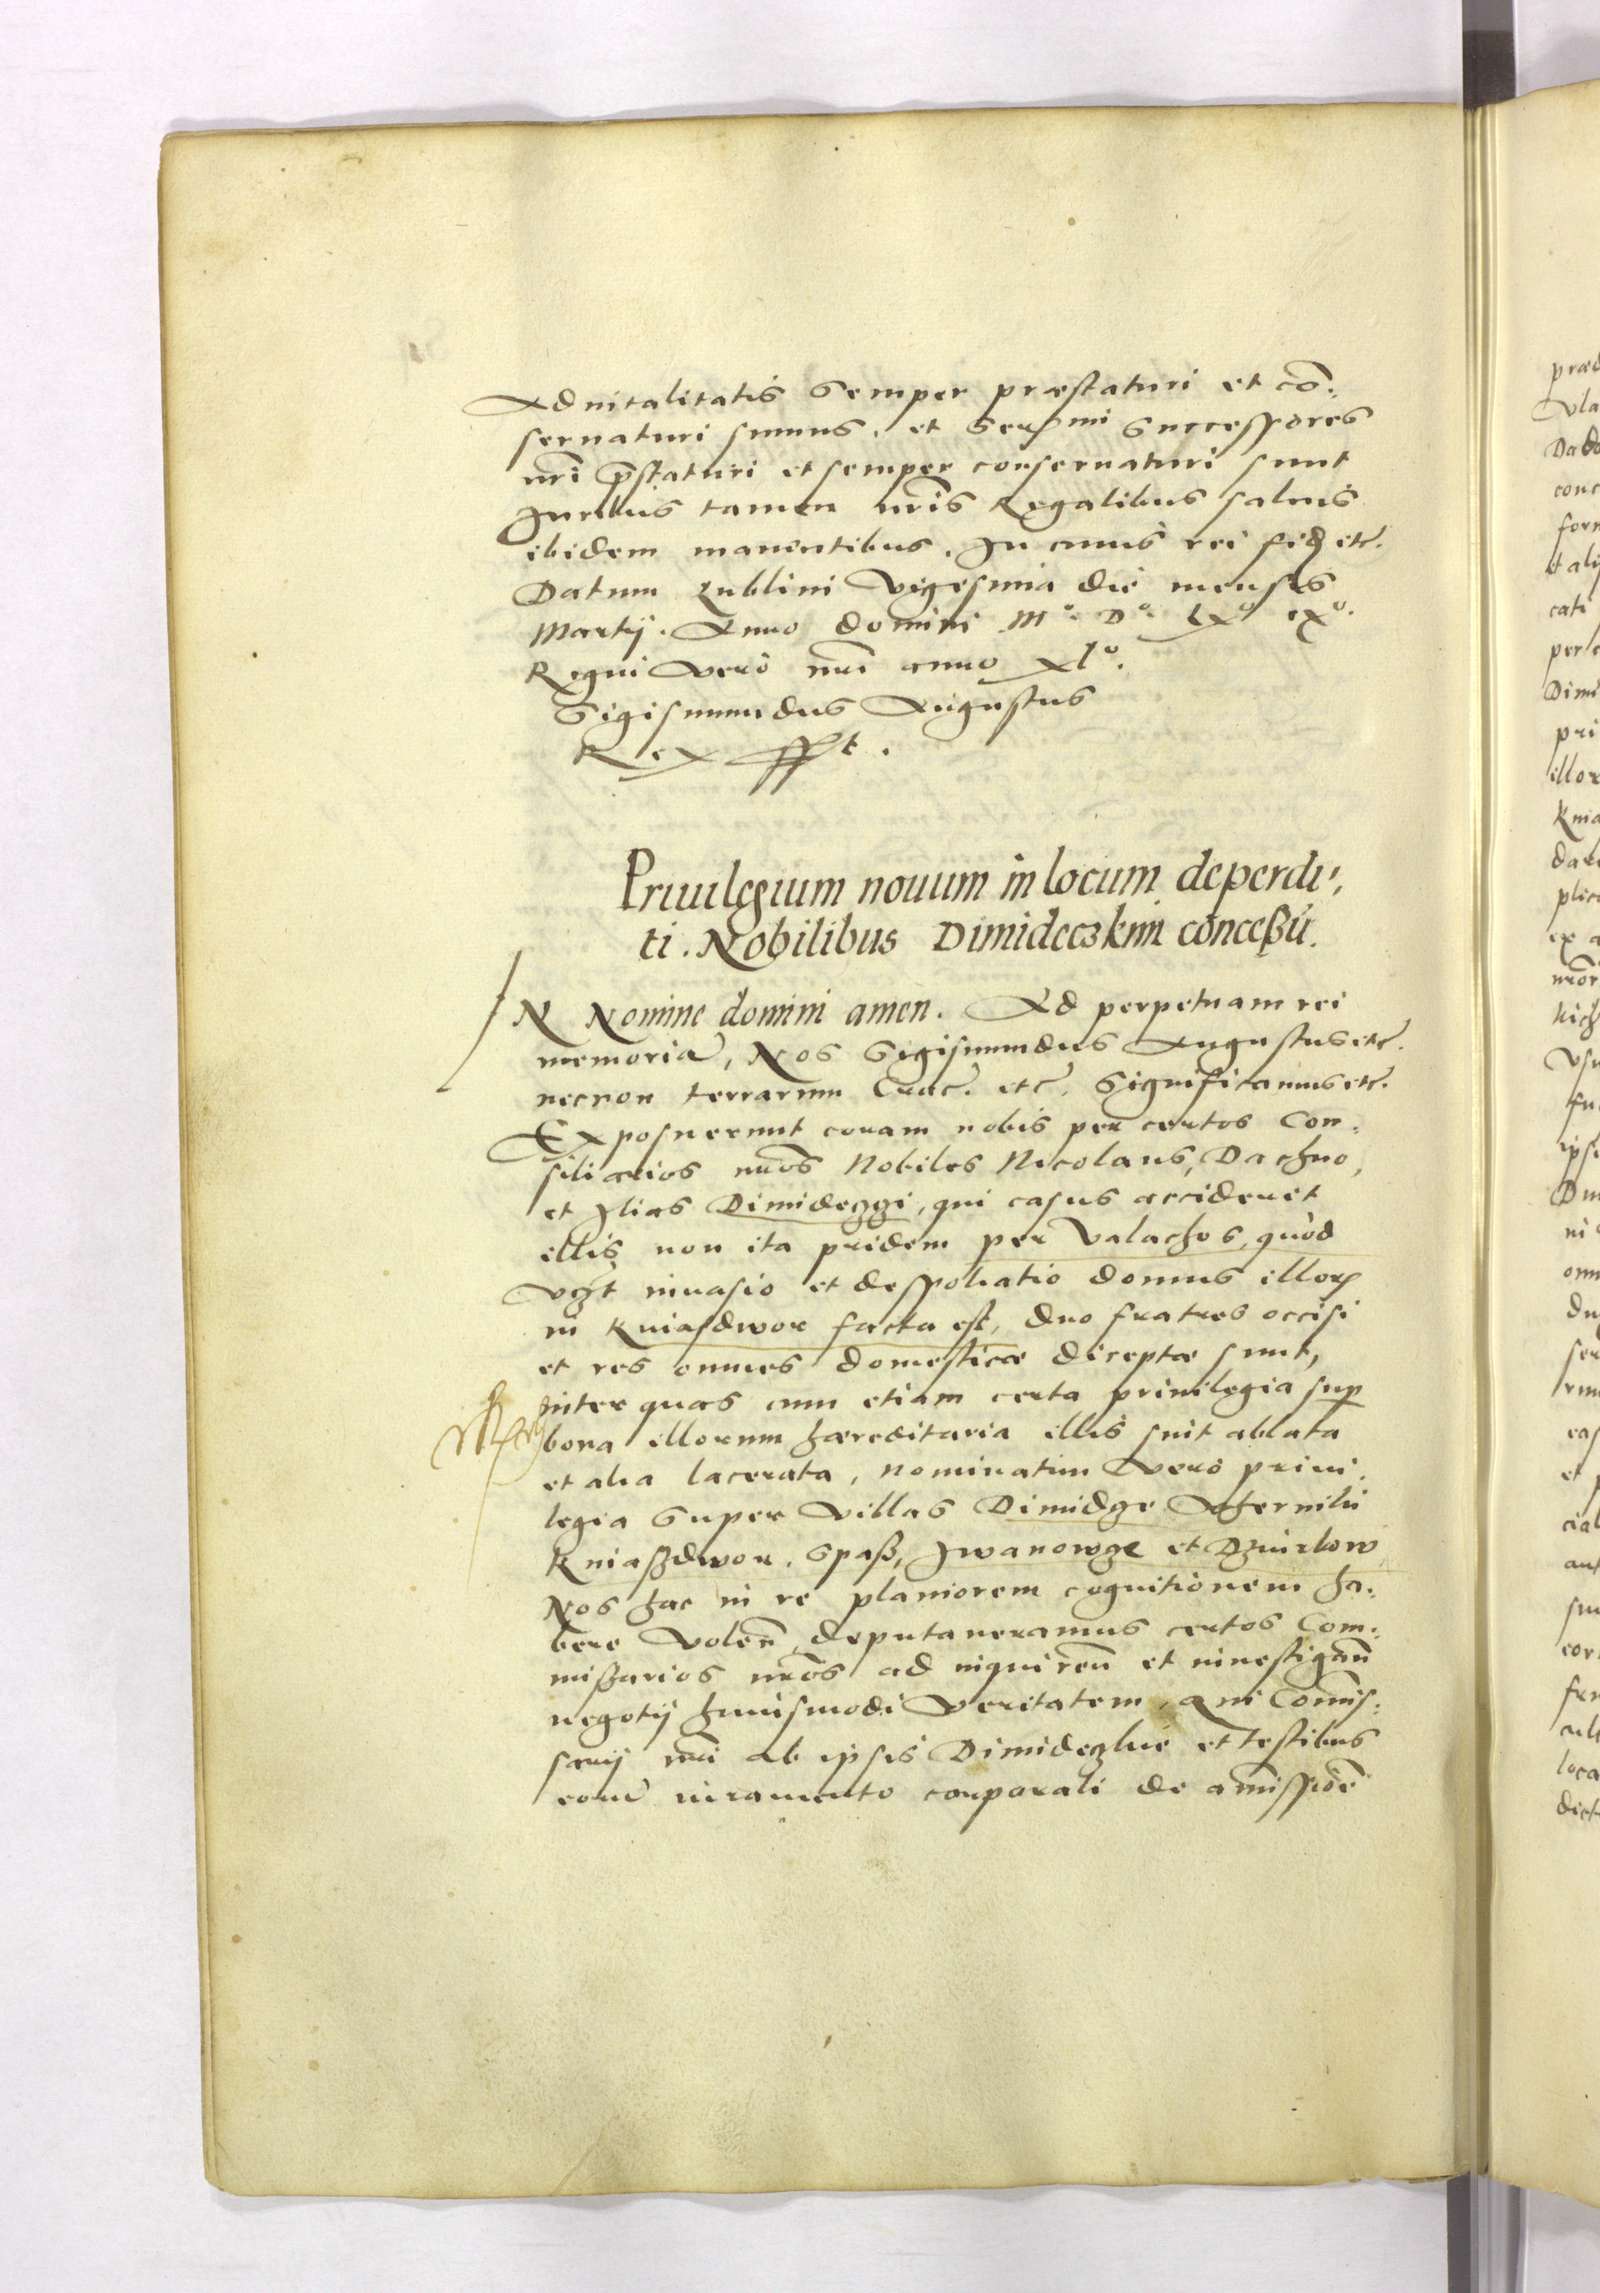 Aduitalitatis semper præstaturi et cō:
seruaturi sumus. et Sermi Successores
nr̃i p̃staturi et semper conseruaturi sunt
Iuribus tamen nr̃is Regalibus saluis
ibidem manentibus. In cuius rei fid etc.
Datum Lublini vigesima die mensis
Martij. Anno domini M° D° LX° IX°.
Regni vero nr̃i anno xl°.
Sigismundus Augustus
Rex sspt.
Priuilegium nouum in locum deperdi:
ti. Nobilibus Dimideczkim conceßū.
IN Nomine domini amen. Ad perpetuam rei
memoriā, Nos Sigismundus Augustus etc.
necnon terrarum Crac. etc. Significamus etc.
Exposuerunt coram nobis per certos Con:
siliarios nr̃os Nobiles Nicolaus, Dachno,
et Ilias Dimideczgi, qui casus acciderit
illis non ita pridem per Valachos, quòd
vczt inuasio et despoliatio domus illorꝫ
in Kniasdwor facta est, duo fratres occisi
et res omnes domesticæ direptæ sunt,
inter quas cum etiam certa priuilegia sup
bona illorum hæreditaria illis sint ablata
et alia lacerata, nominatim vero priui:
legia super villas Dimidze Czernilii
Kniaßdwor. Spaß, Iwanowze et Dzuirkow
Nos hac in re planiorem cognitionem ha:
bere volen̄, deputaueramus certos Com:
mißarios nr̃os ad inquiren̄ et inuestigan̄
negotij huiusmodi veritatem, qui Com̄is:
sarij nr̃i ab ipsis Dimideczkie et testibus
eorū iuramento corporali de amissiōe